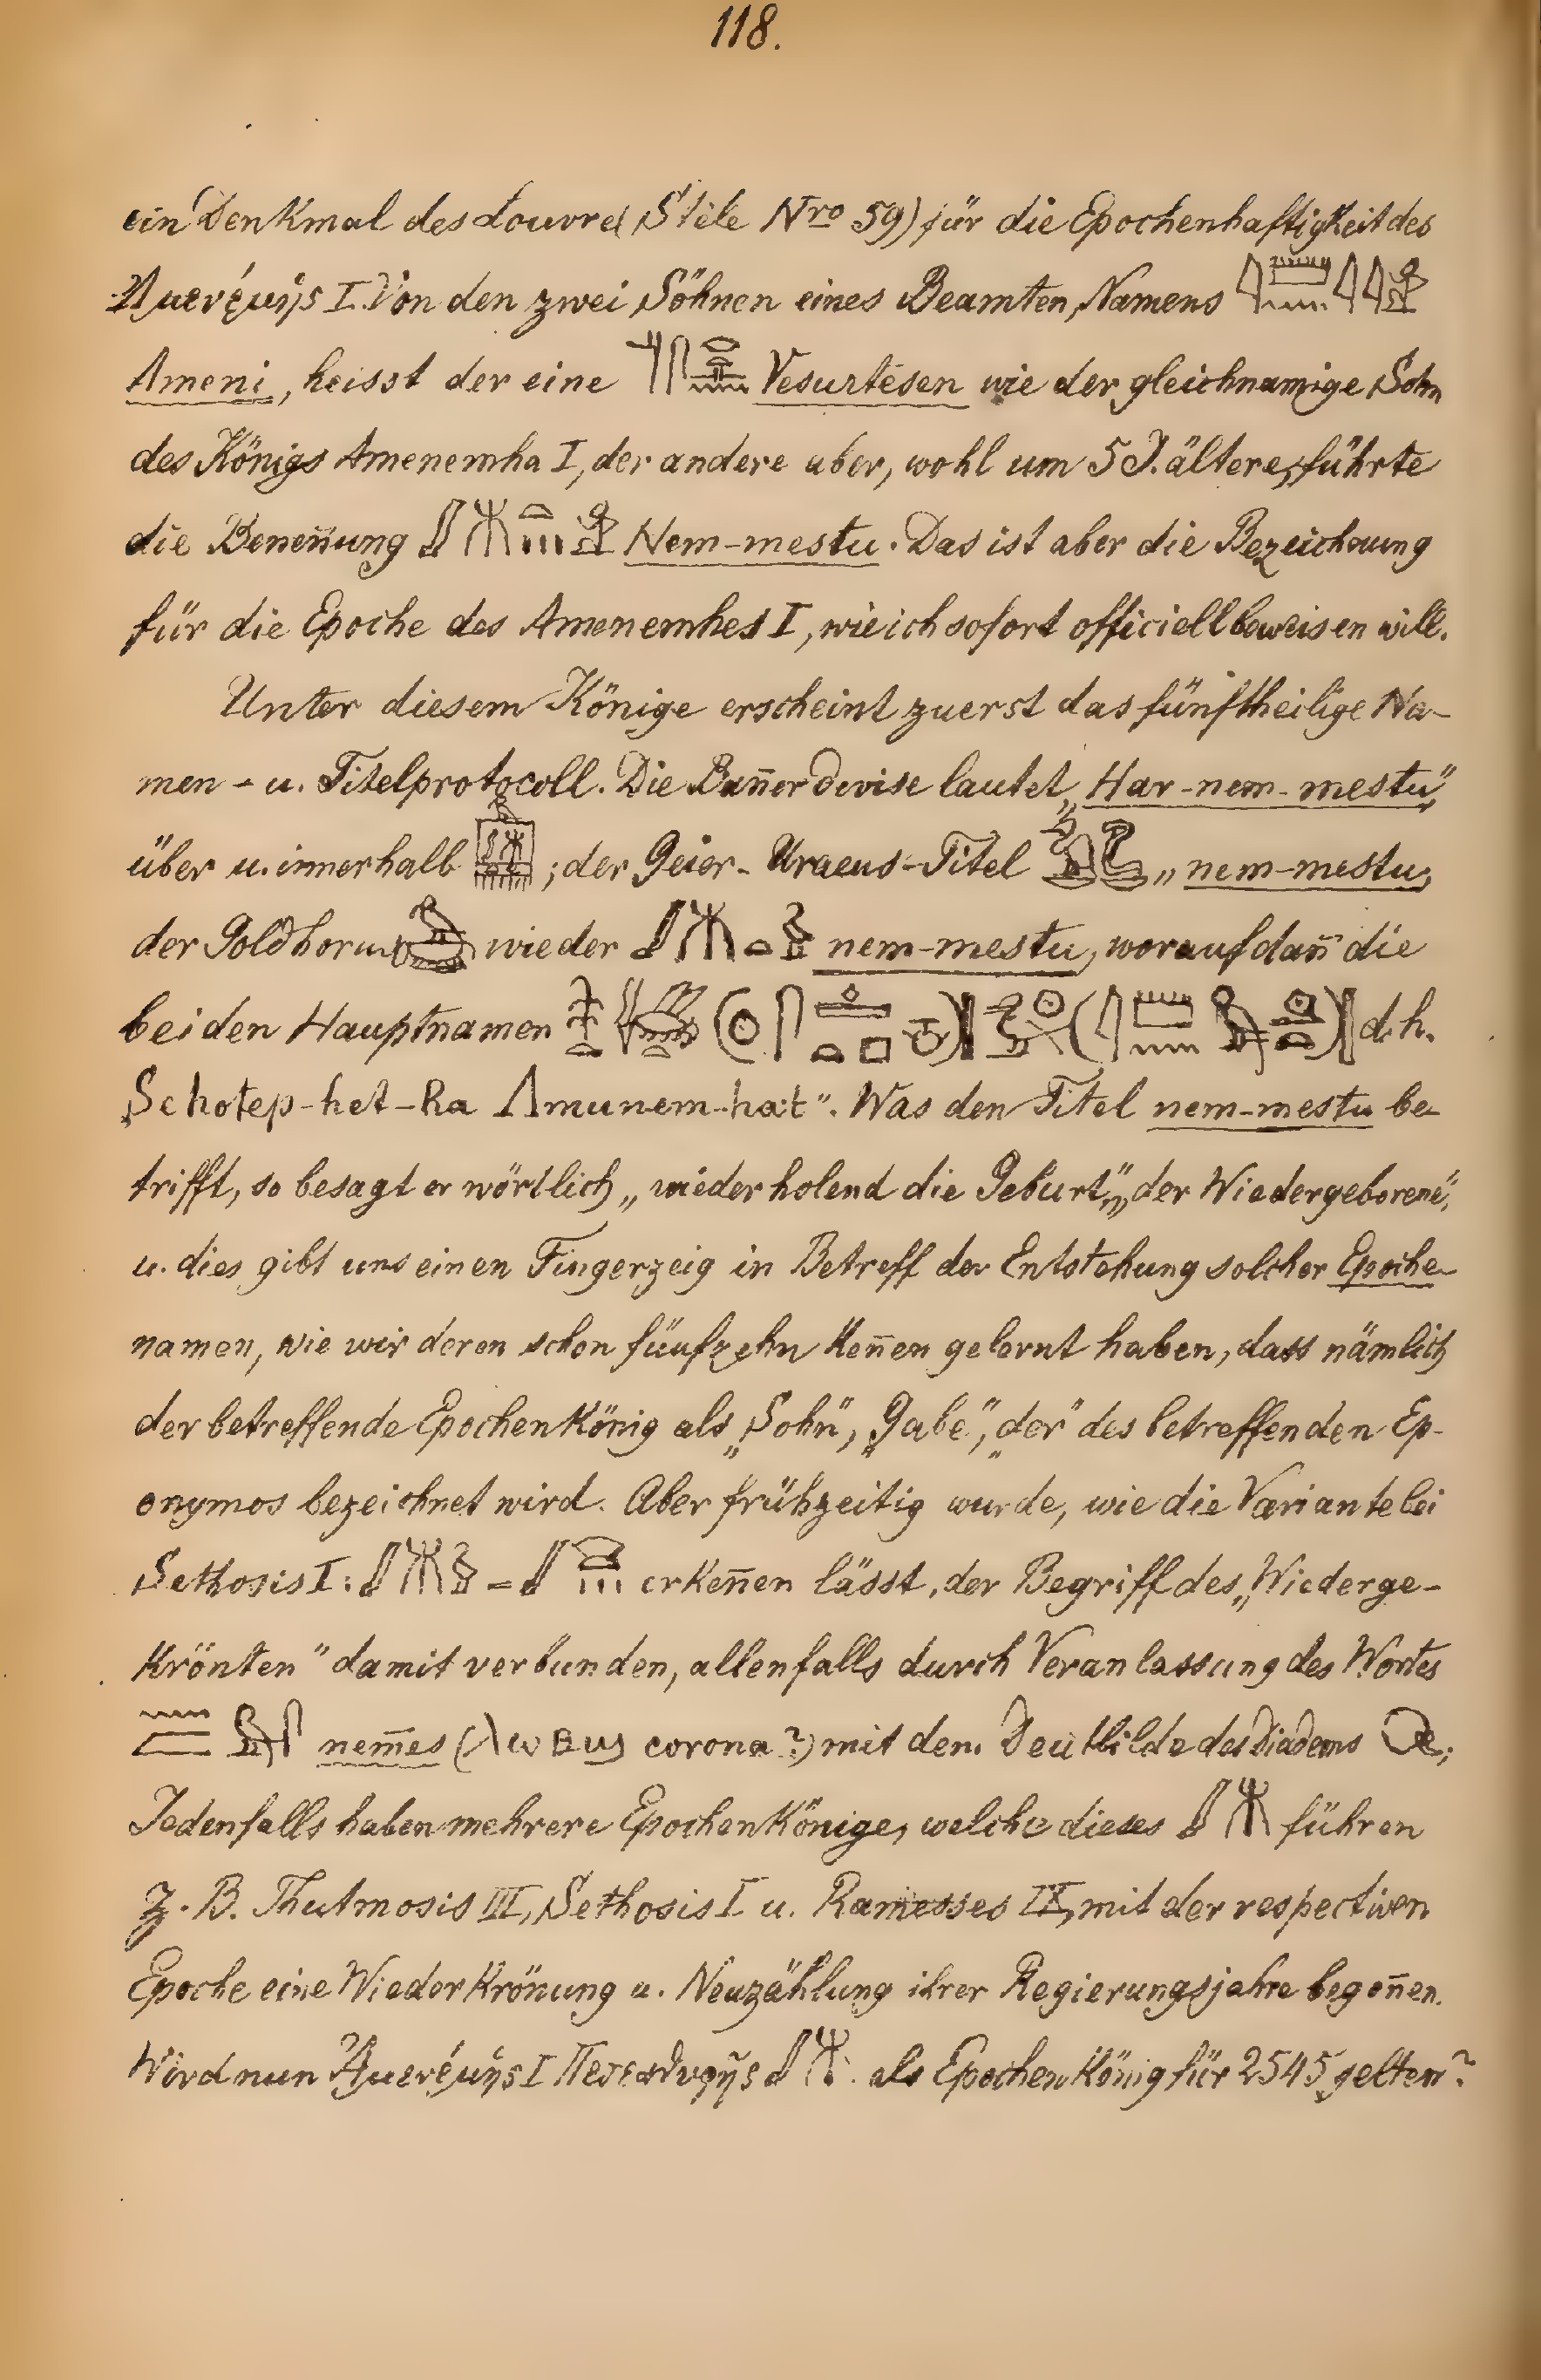 118.
ein Denkmal des Louvre (Stèle Nro 59) für die Epochenhaftigkeit des
Ἀμενέμης I. Von den zwei Söhnen eines Beamten, Namens
Ameni, heisst der eine Vesurtesen wie der gleichnamige Sohn
des Königs Amenemha I, der andere aber, wohl um 5 J. ältere, führte
die Benen̄ung Nem-mestu. Das ist aber die Bezeichnung
für die Epoche des Amenemhes I, wie ich sofort officiell beweisen will.
Unter diesem Könige erscheint zuerst das fünftheilige Na-
men- u. Titelprotocoll. Die Ban̄erdevise lautet „Har-nem-mestu“,
über u. innerhalb ; der Geier-Uraeus-Titel „nem-mestu,
der Goldhorus wieder nem-mestu, worauf dan̄ die
beiden Hauptnamen d.h.
„Schotep-het-Ra Amunem-hat“. Was den Titel nem-mestu be-
trifft, so besagt er wörtlich „wiederholend die Geburt“, „der Wiedergeborene“,
u. dies gibt uns einen Fingerzeig in Betreff der Entstehung solcher Epochen-
namen, wie wir deren schon fünfzehn ken̄en gelernt haben, dass nämlich
der betreffende Epochenkönig als „Sohn“, „Gabe“, „der“ des betreffenden Ep-
onymos bezeichnet wird. Aber frühzeitig wurde, wie die Variante bei
Sethosis I: = erken̄en lässt, der Begriff des „Wiederge-
krönten“ damit verbunden, allenfalls durch Veranlassung des Wortes
nem̄es ( corona?) mit dem Deutbilde des Diadems ;
Jedenfalls haben mehrere Epochenkönige, welche dieses führen
z. B. Thutmosis III, Sethosis I u. Ramesses IX, mit der respectiven
Epoche eine Wiederkrönung u. Neuzählung ihrer Regierungsjahre begon̄en.
Wird nun Ἀμενέμης I als Epochenkönig für 2545 gelten?